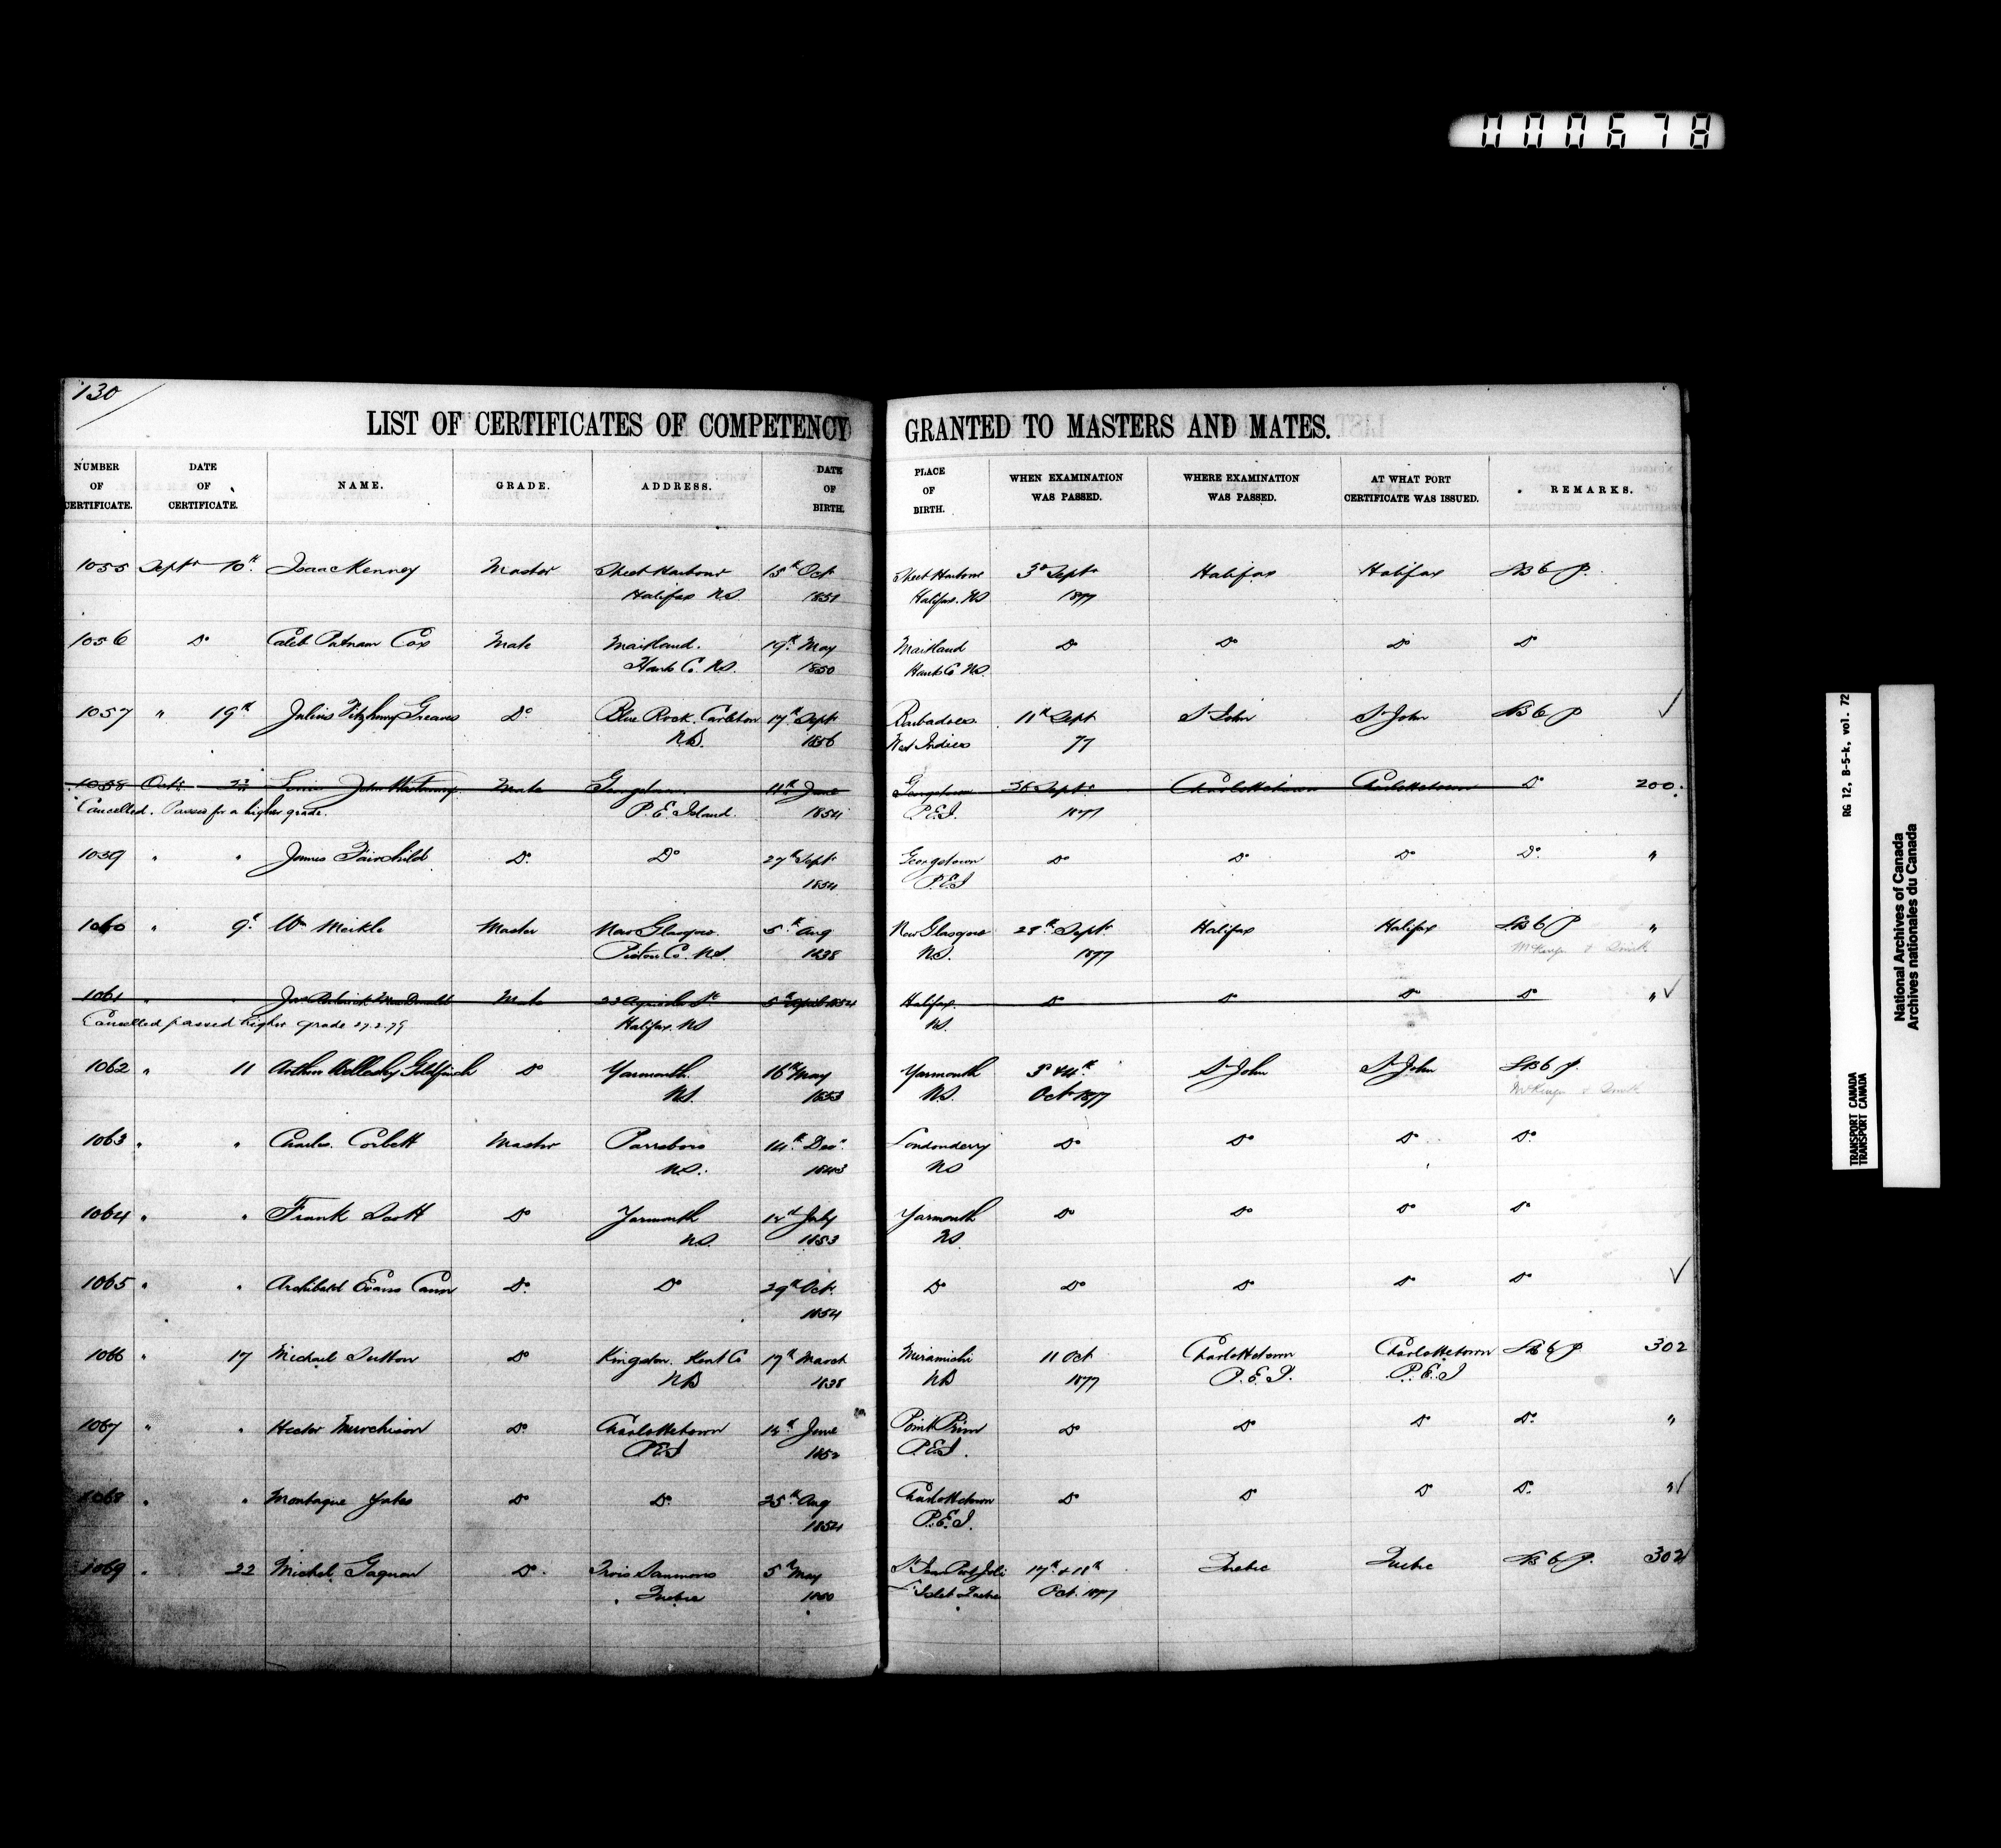 000678
130
LIST OF CERTIFICATES OF COMPETENCY GRANTED TO MASTERS AND MATES.
NUMBER OF CERTIFICATE. DATE OF CERTIFICATE. NAME. GRADE. ADDRESS. DATE OF BIRTH. PLACE OF BIRTH. WHEN EXAMINATION WAS PASSED. WHERE EXAMINATION WAS PASSED. AT WHAT PORT CERTIFICATE WAS ISSUED. REMARKS.
1055 Septr 10th Isaac Kenney Master Sheet Harbour 15th Oct Sheet Harbour 3d Septr Halifax Halifax
Halifax NS. 1851 Halifax. NS 1877
1056 Do Caleb Putnam Cox Mate Maitland. 19th May Maitland Do Do Do Do
Hants Co. NS. 1850 Hants Co NS.
1057 " 19th Julius Fitzhenry Greaves Do Blue Rock. Carleton 17th Septr Barbadoes 11th Sept St John St John
NB. 1856 West Indies 77
1058 Octr John Mate Georgetown 11th June Georgetown Septr Charlottetown Charlottetown Do 200
Cancelled. Passed for a higher grade. P. E. Island. 1854 P.E.I. 1877
1059 " " James Fairchild Do. Do 27th Septr Georgetown Do Do Do Do. "
1854 P.E.I
1060 " 9th Wm Meikle Master New Glasgow. 5th Aug New Glasgow 28th Septr Halifax Halifax "
Pictou Co. NS. 1838 NS. 1877
1061 " " MacDonald Mate 5th April 1854 Halifax. Do Do Do Do "
Cancelled passed higher grade 27.2.79 Halifax. NS NS.
1062 " 11 Arthur Wellesley Goldfinch Do Yarmouth. 16th May Yarmouth 3d & 4th St John St John
NS. 1853 NS. Oct 1877
1063 " " Charles Corbett Master Parrsboro 14th Decr Londonderry Do Do Do Do.
NS. 1843 NS
1064 " " Frank Scott Do Yarmouth July Yarmouth Do Do Do Do
NS. 1853 NS.
1065 " " Archibald Evans Cann Do. Do 29th Oct. Do Do Do Do Do
1854
1066 " 17 Michael Sutton Do Kingston. Kent Co 17th March Miramichi 11 Oct Charlottetown Charlottetown 302
NB 1838 NB 1877 P.E.I. P.E.I
1067 " " Hector Murchison Do. Charlottetown June Point Prim Do Do Do Do. "
P.E.I 1852 P.E.I.
1068 " " Montague Yates Do Do. 25th Aug Charlottetown Do Do Do Do. "
1854 P.E.I.
1069 " 22 Michel Gagnon Do. Trois Saumons 5th May St Jean Port Joli 17th & 18th Quebec Quebec 302
Quebec L'Islet Quebec Oct. 1877
RG 12, B-5-k, vol. 72
TRANSPORT CANADA
TRANSPORT CANADA
National Archives of Canada
Archives nationales du Canada